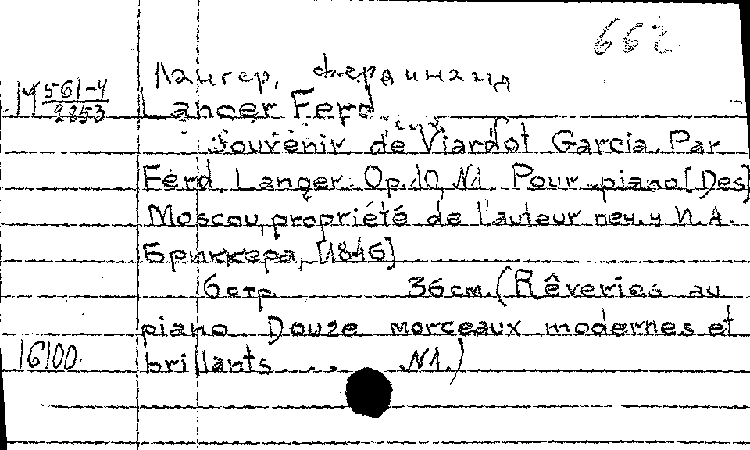 662
Лангер, Фердинанд
М 561-4
2253
Langer Ferd.
Souvenir de Viardot Garcia. Par
Ferd. Langer. Op. 10, N1. Pour piano [Des]
Moscou, propriété de l'auteur печ. у И. А.
Бриккера, [1846]
6 стр 36 см. (Rêveries au
piano. Douze morceaux modernes et
16100 brillants . . . N1.)